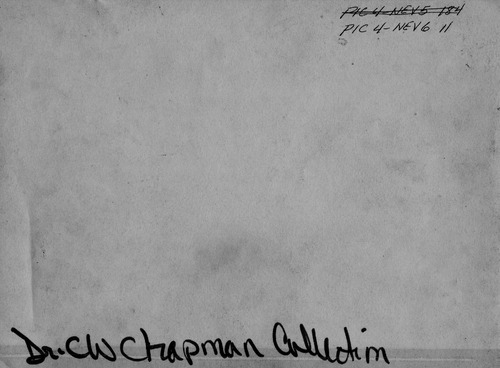 PIC 4-NEV5 184
PIC 4-NEV6 11
Dr. CW Chapman Collection